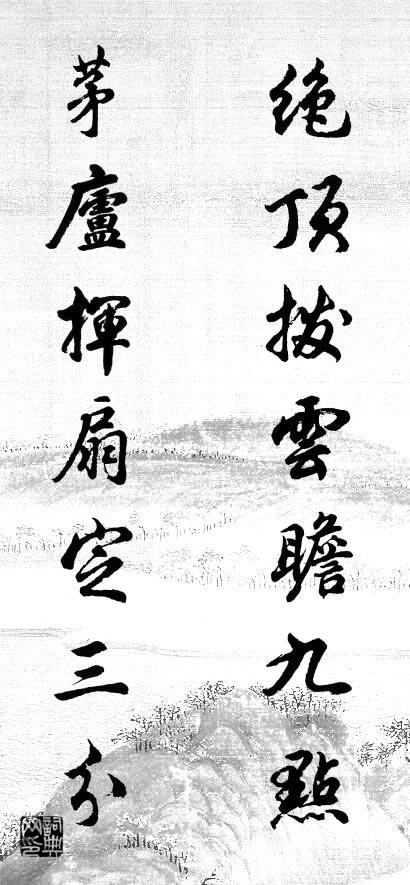 绝顶拨雲瞻九點
茅廬揮扇定三分
詞典网